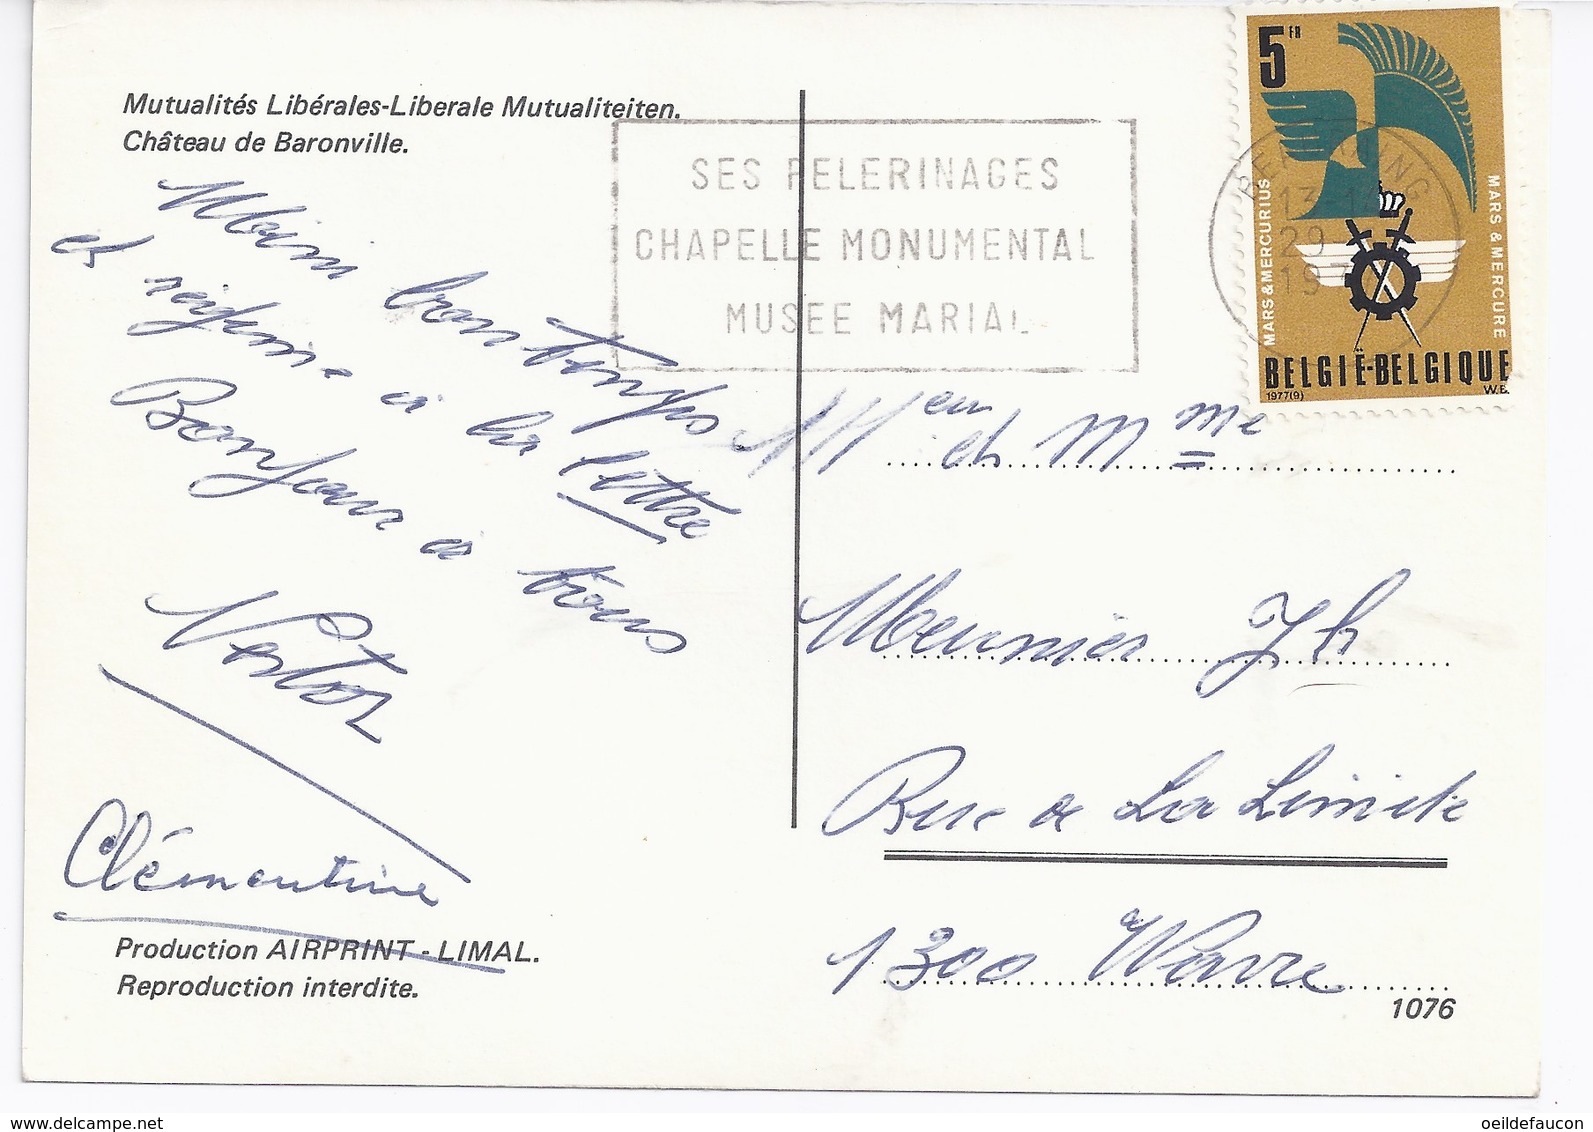 Mutualités Libérales-Liberale Mutualiteiten.
Château de Baronville.
SES PELERINAGES
CHAPELLE MONUMENTAL
MUSEE MARIAL
5 FR
MARS & MERCURIUS
MARS & MERCURE
BELGIË-BELGIQUE
1977(9)
W.B.
13-14
29
bon temps
et régime à la lettre
Bonjour à tous
Nestor
Clémentine
Production AIRPRINT - LIMAL.
Reproduction interdite.
et Mme
Meunier Jh
Rue de La Limite
1300 Wavre
1076
www.delcampe.net
oeildefaucon